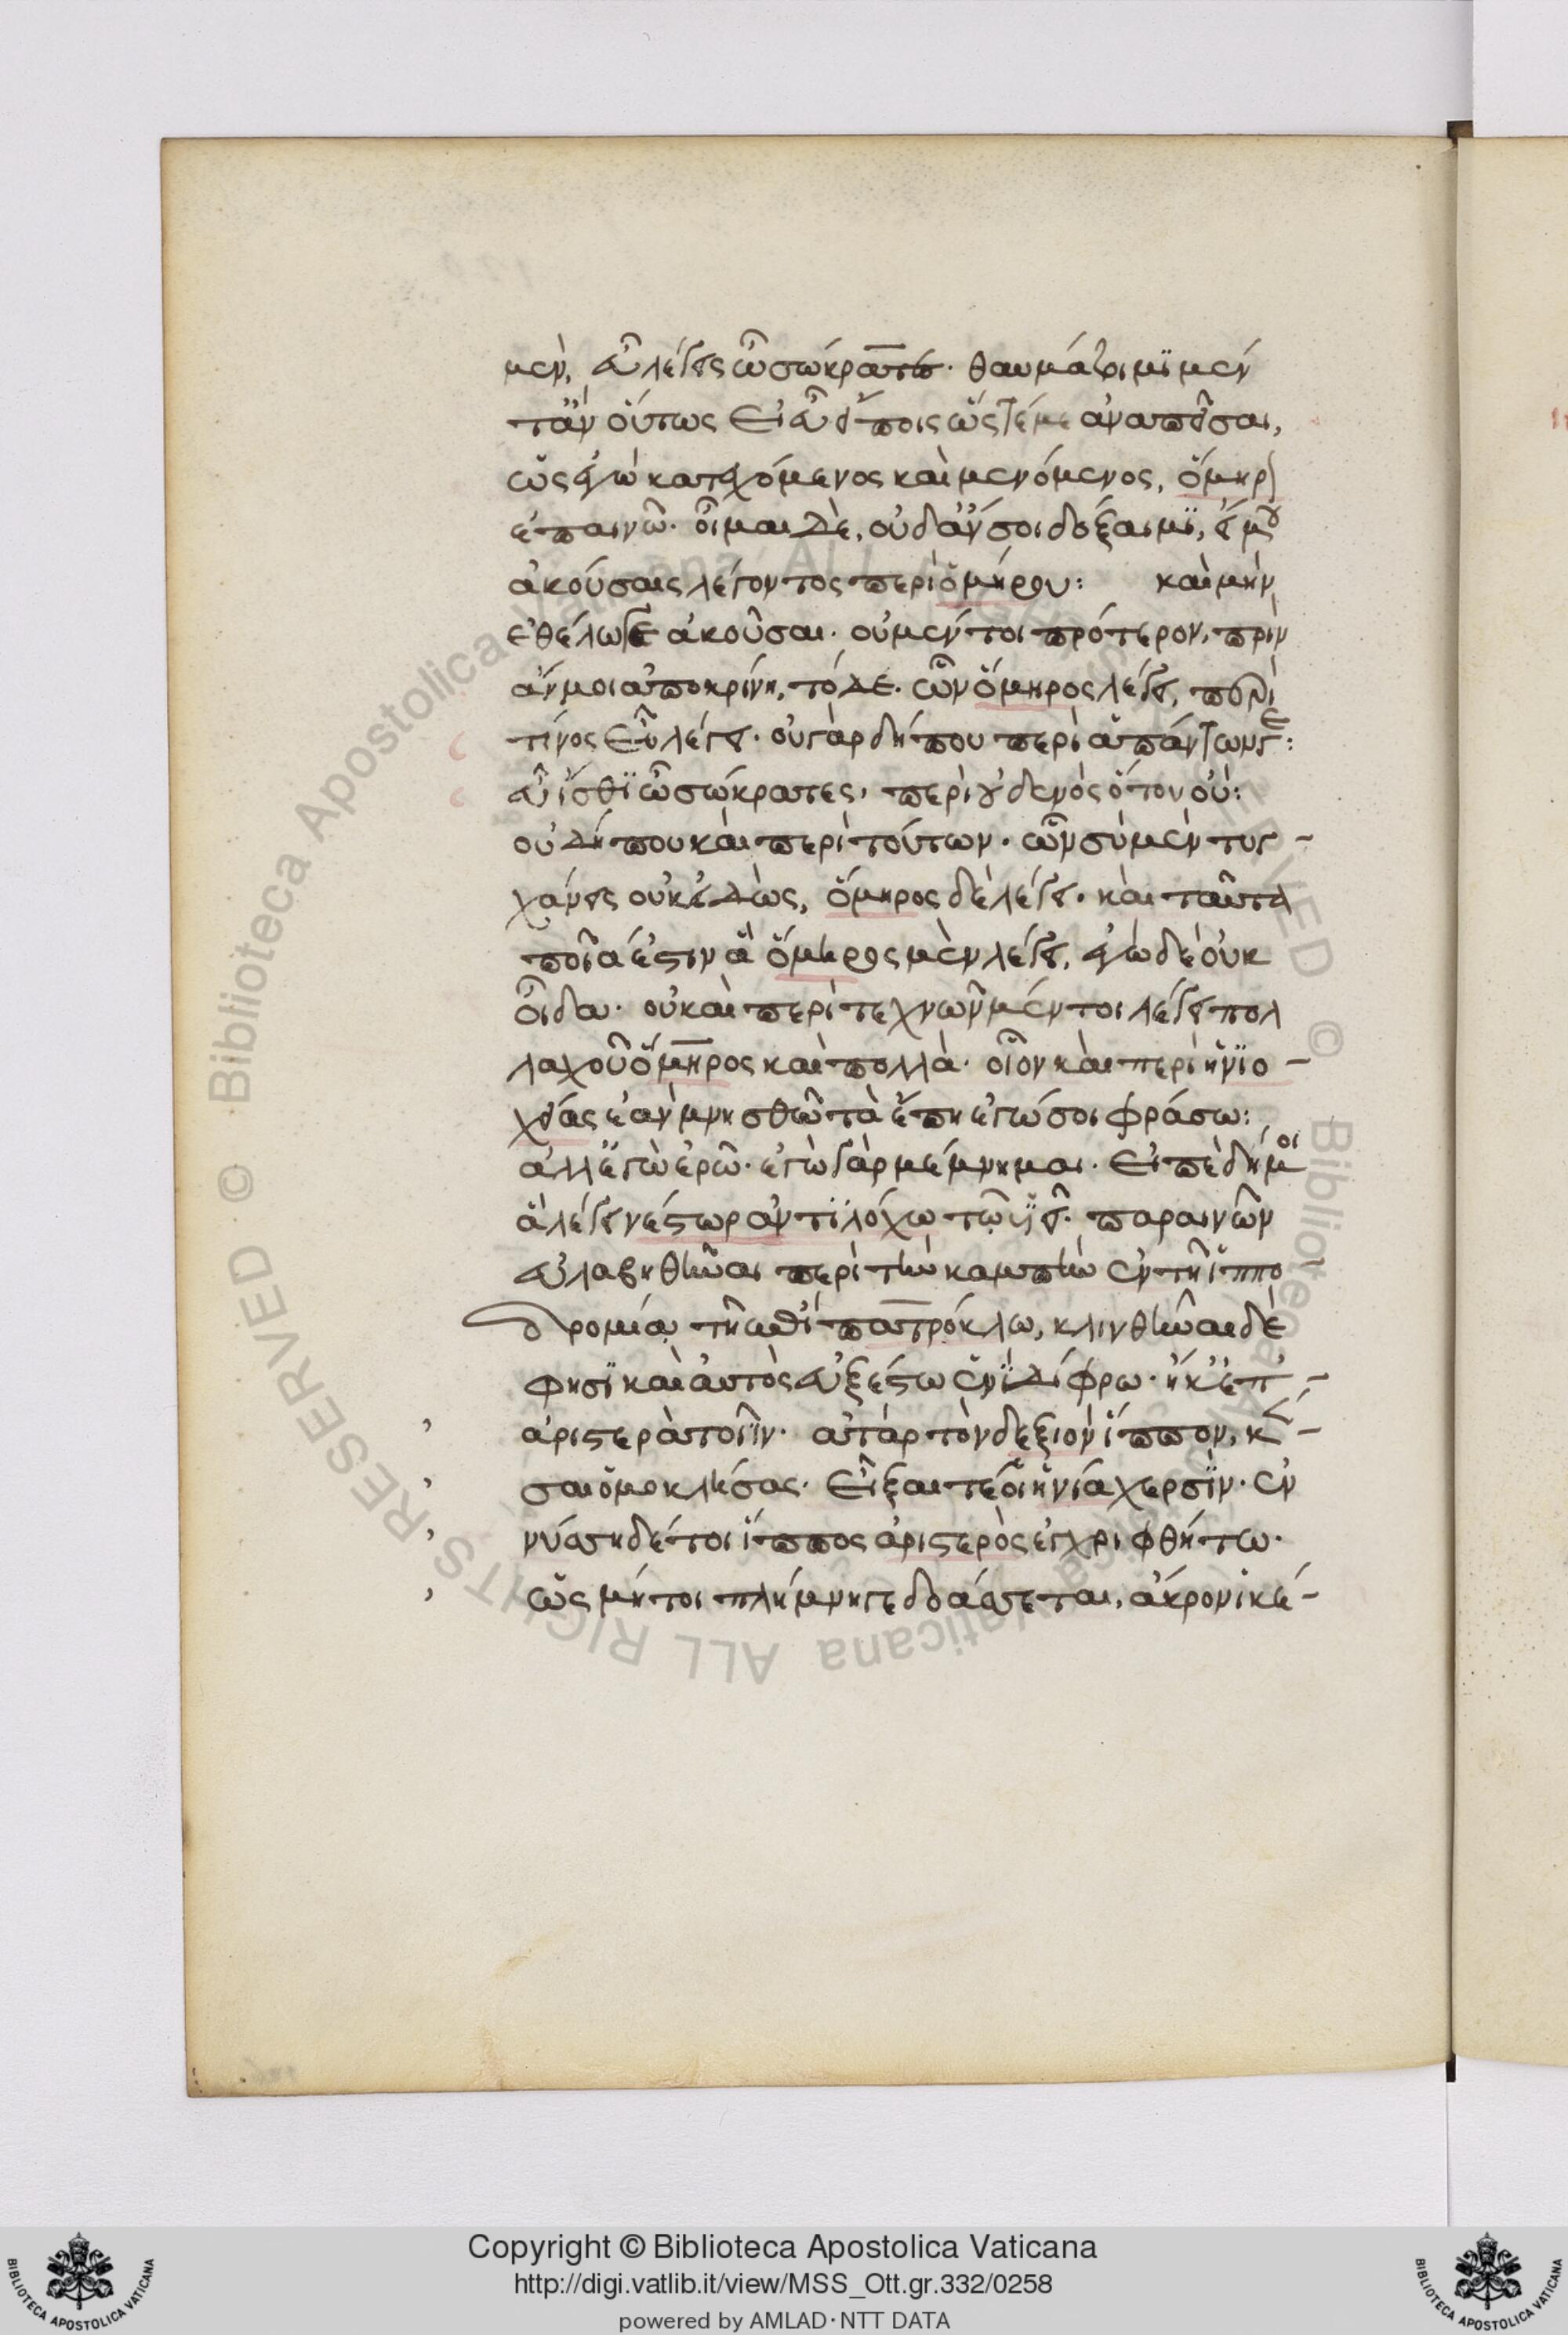 μὲν, εὖ λέγεις ὦ σώκρατες· θαυμάζοιμι μὲν
τἂν οὕτως εἰ εὖ εἴποις ὥστε ἐμὲ ἀναπεῖσαι,
ὡς ἐγὼ κατεχόμενος καὶ μενόμενος, ὅμηρ
ἐπαινῶ· οἶμαι δὲ, οὐδ' ἂν σοι δόξαιμι, εἴ μου
ἀκούσαις λέγοντος περὶ ὁμήρου: καὶ μὴν
ἐθέλω γε ἀκοῦσαι· οὐ μέντοι πρότερον, πρὶν
ἄν μοι ἀποκρίνη, τόδε· ὧν ὅμηρος λέγει, περὶ
τίνος εὖ λέγει· οὐ γὰρ δήπου περὶ ἁπάντων γε:
εὖ ἴσθι ὦ σώκρατες, περὶ οὐδενὸς ὅτου οὔ:
οὐ δήπου καὶ περὶ τούτων· ὧν σὺ μὲν τυγ-
χάνεις οὐκ εἰδὼς, ὅμηρος δὲ λέγει· καὶ ταῦτα
ποῖα ἐστιν ἃ ὅμηρος μὲν λέγει, ἐγὼ δὲ οὐκ
οἶδα· οὐ καὶ περὶ τεχνῶν μέντοι λέγει πολ
λαχοῦ ὅμηρος καὶ πολλὰ· οἷον καὶ περὶ ἡνιο-
χείας ἐὰν μνησθῶ τὰ ἔπη ἐγώ σοι φράσω:
ἀλλ' ἐγὼ ἐρῶ· ἐγὼ γὰρ μέμνημαι· εἰπὲ δή μοι
ἃ λέγει νέστωρ ἀντιλόχω τῶ υἱεῖ· παραινῶν
εὐλαβηθῆναι περὶ τὴν καμπὴν ἐν τῆ ἱππο
δρομία τῆ ἐπὶ πατρόκλω, κλινθῆναι δὲ
φησὶ καὶ αὐτὸς εὐξέστω ἐνὶ δίφρω· ἦκ' ἐπ'-
ἀριστερὰ τοῖιν· ἀτὰρ τὸν δεξιὸν ἵππον, κέν-
σαι ὁμοκλήσας· εἶξαι τέ οἱ ἡνία χερσὶν· ἐν
νύσση δέ τοι ἵππος ἀριστερὸς ἐγχριφθήτω·
ὡς μή τοι πλήμνη γε δοάσεται, ἄκρον ἱκέ-
Copyright © Biblioteca Apostolica Vaticana
http://digi.vatlib.it/view/MSS_Ott.gr.332/0258
powered by AMLAD·NTT DATA